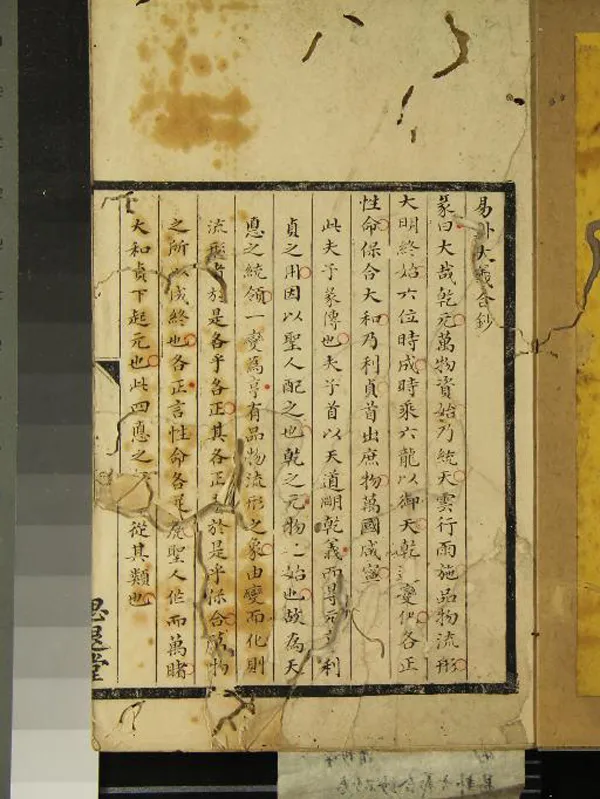 易卦大義合鈔
彖曰大哉乾元萬物資始乃統天雲行雨施品物流形
大明終始六位時成時乘六龍以御天乾道變化各正
性命保合大和乃利貞首出庶物萬國咸寧
此夫子彖傳也夫子首以天道明乾義而㝵元亨利
貞之用因以聖人配之也乾之元物之始也故為天
惪之統領一變為亨有品物流形之象由變而化則
流形者於是各乎各正其各正於是乎保合萬物
之所以成終也各正言性命各足處聖人作而萬睹
大和貞下起元也此四惪之從其類也
思退堂